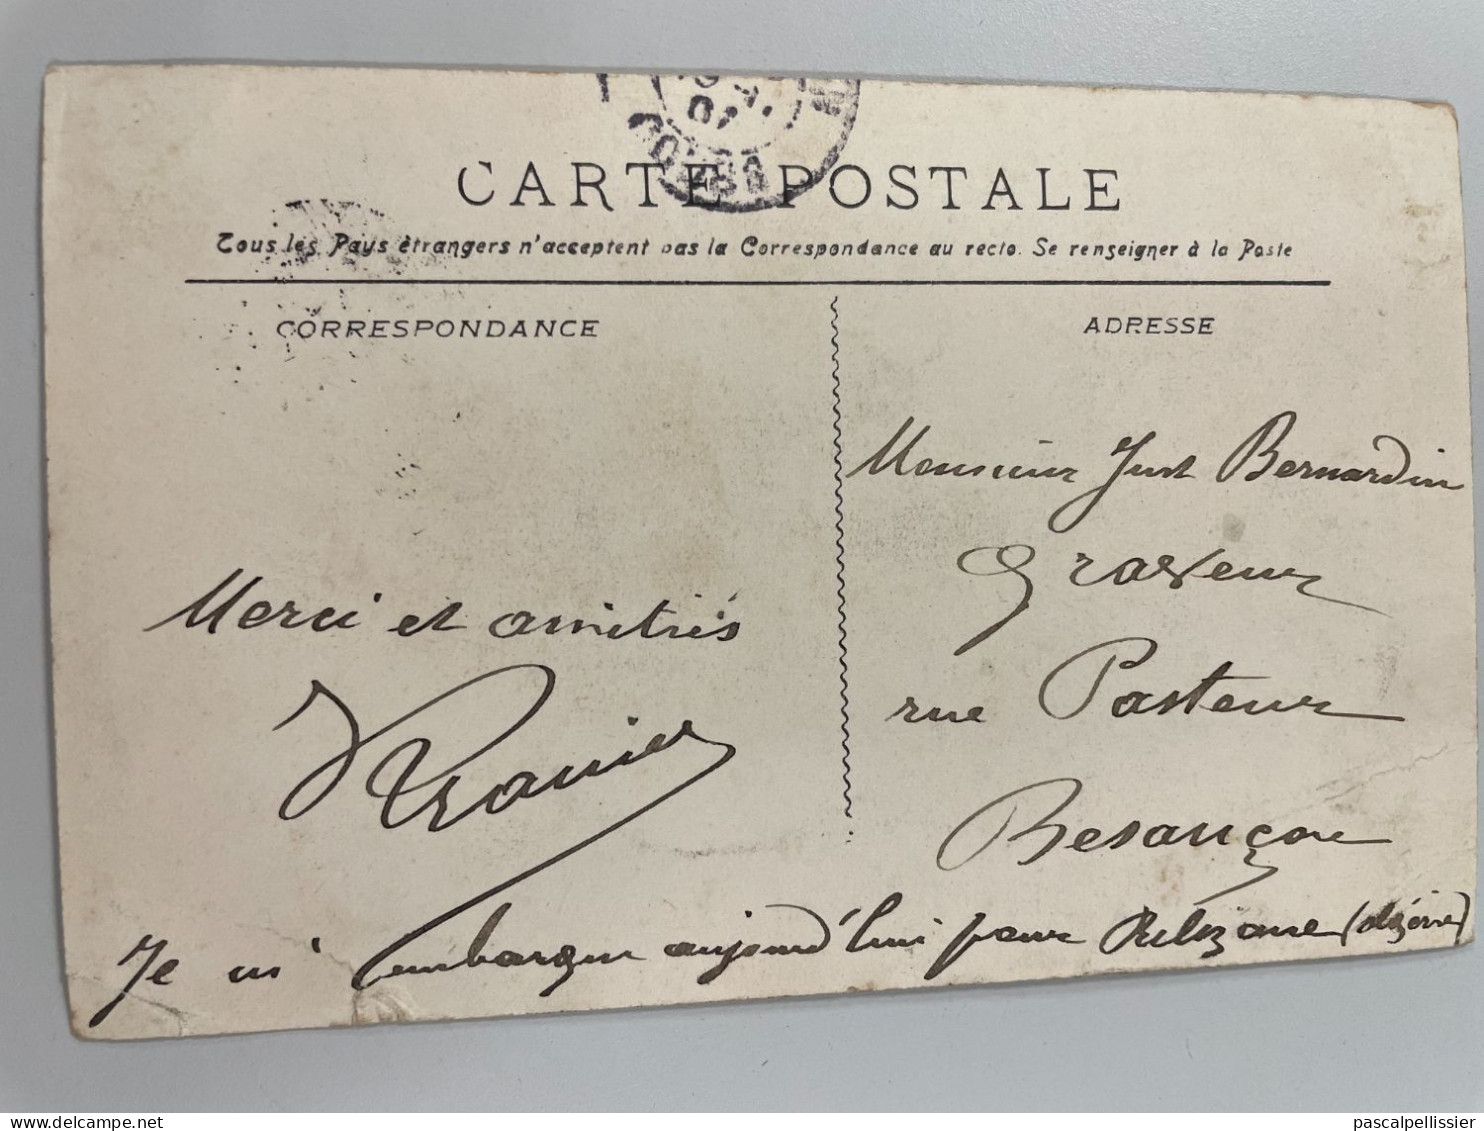 CARTE POSTALE
Tous les Pays étrangers n'acceptent pas la Correspondance au recto. Se renseigner à la Poste
CORRESPONDANCE
ADRESSE
Monsieur Just Bernardin
Graveur
rue Pasteur
Besançon
Merci et amitiés
Je m'embarque aujourd'hui pour Relizane (Algérie)
delcampe.net
pascalpellissier